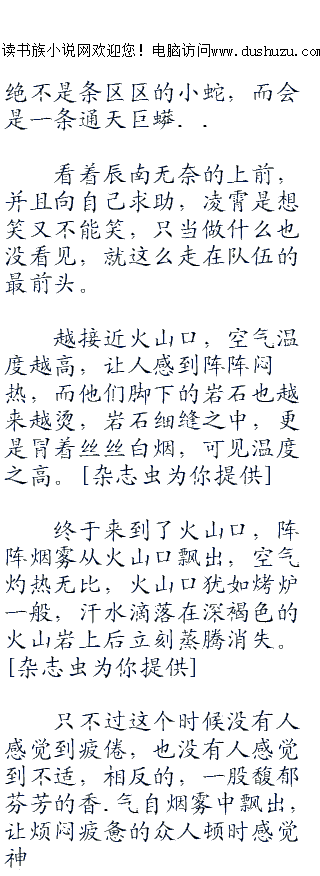 读书族小说网欢迎您！电脑访问www.dushuzu.com
绝不是条区区的小蛇，而会
是一条通天巨蟒．．
看着辰南无奈的上前，
并且向自己求助，凌霄是想
笑又不能笑，只当做什么也
没看见，就这么走在队伍的
最前头。
越接近火山口，空气温
度越高，让人感到阵阵闷
热，而他们脚下的岩石也越
来越烫，岩石细缝之中，更
是冒着丝丝白烟，可见温度
之高。[杂志虫为你提供]
终于来到了火山口，阵
阵烟雾从火山口飘出，空气
灼热无比，火山口犹如烤炉
一般，汗水滴落在深褐色的
火山岩上后立刻蒸腾消失。
[杂志虫为你提供]
只不过这个时候没有人
感觉到疲倦，也没有人感觉
到不适，相反的，一股馥郁
芬芳的香.气自烟雾中飘出，
让烦闷疲惫的众人顿时感觉
神